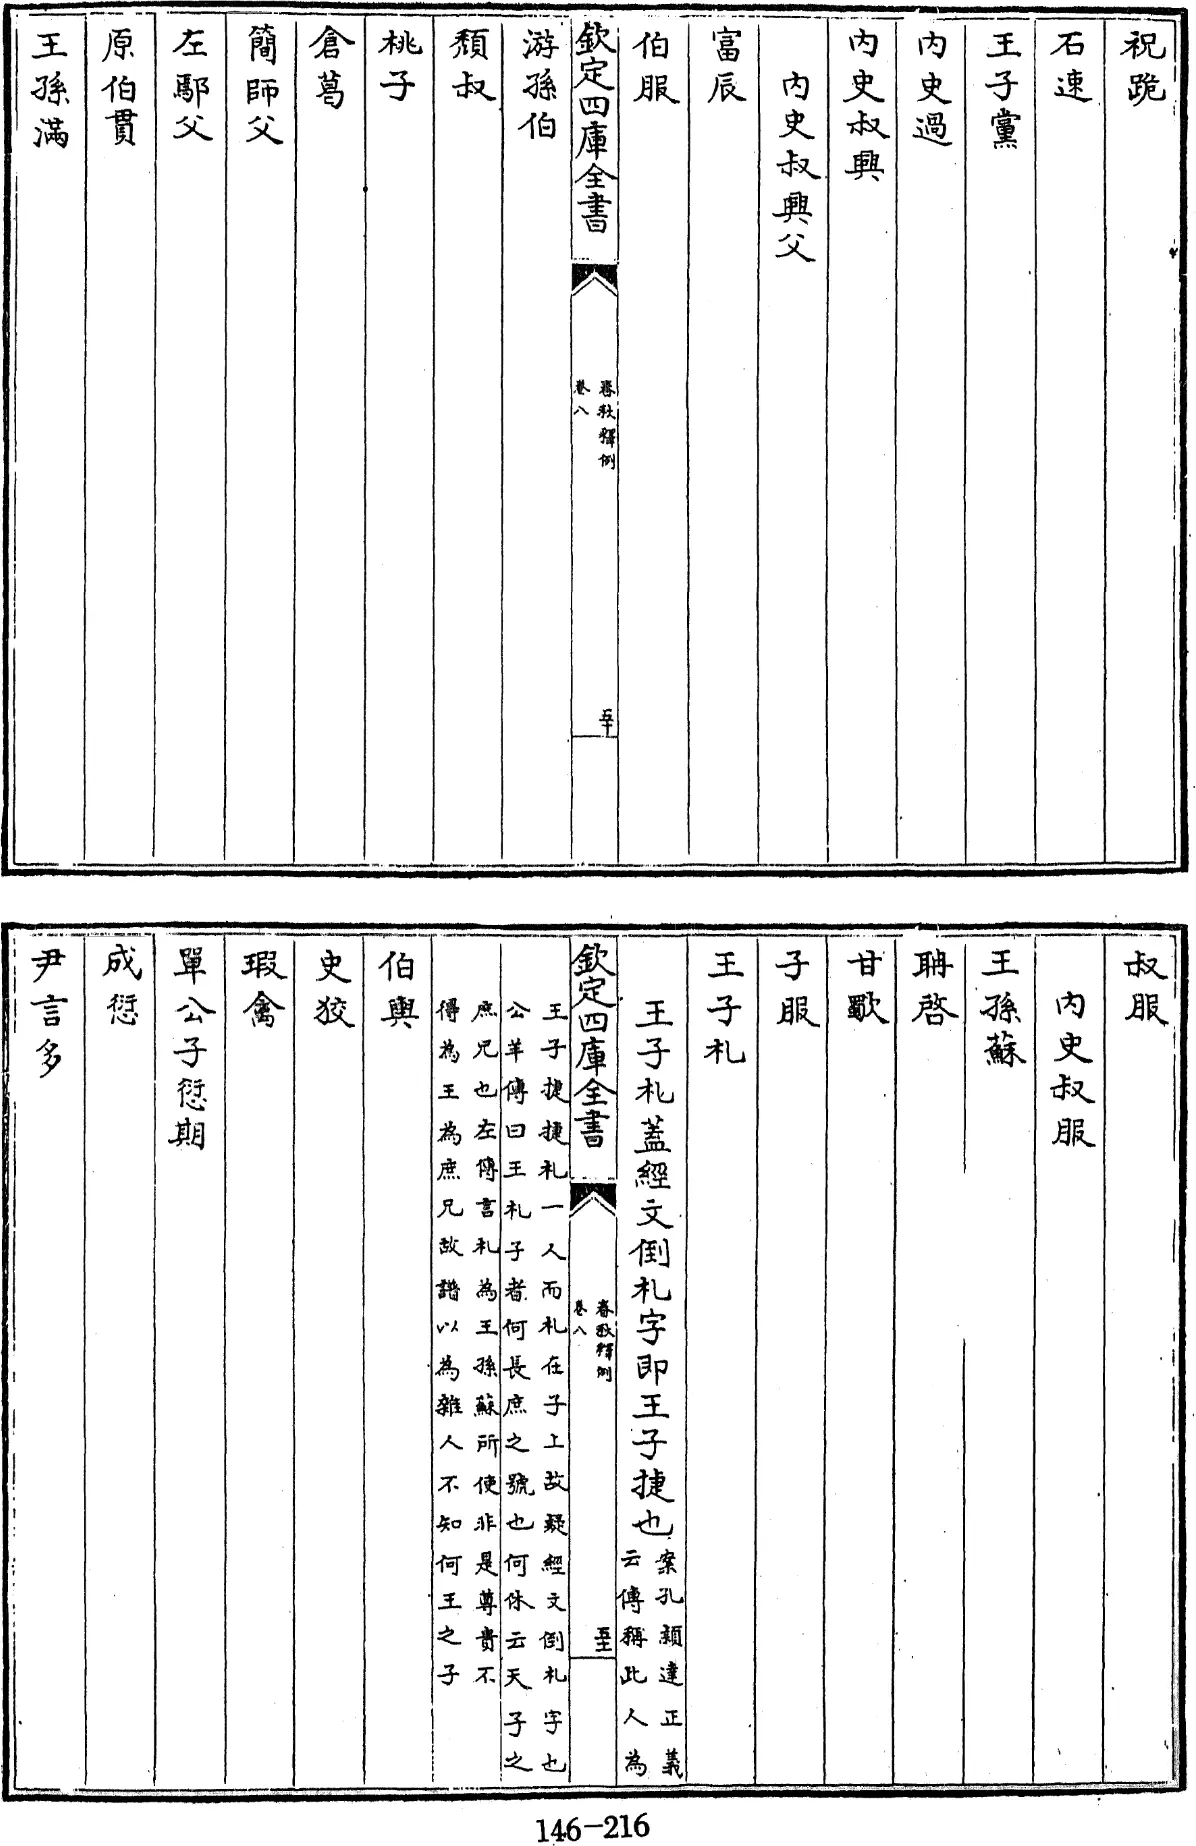 祝跪
石速
王子黨
內史過
內史叔興
內史叔興父
富辰
伯服
欽定四庫全書
春秋釋例
卷八
五十
游孫伯
頹叔
桃子
倉葛
簡師父
左鄢父
原伯貫
王孫滿
叔服
內史叔服
王孫蘇
聃啓
甘歜
子服
王子札
王子札蓋經文倒札字即王子捷也
案孔穎達正義
云傳稱此人為
欽定四庫全書
春秋釋例
卷八
五十一
王子捷捷札一人而札在子上故疑經文倒札字也
公羊傳曰王札子者何長庶之號也何休云天子之
庶兄也左傳言札為王孫蘇所使非是尊貴不
得為王為庶兄故譜以為雜人不知何王之子
伯輿
史狡
瑕禽
單公子愆期
成愆
尹言多
146-216